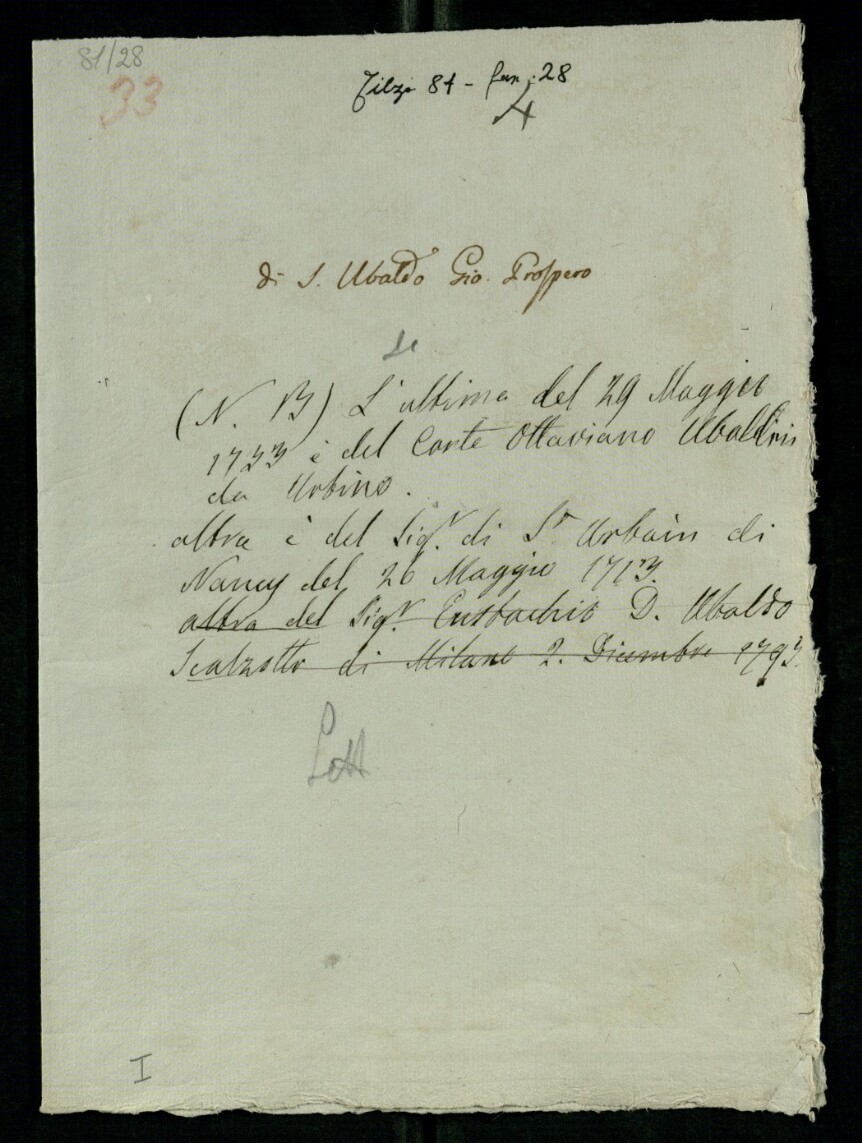 81/28
33
Filza 81 - fasc. 28
4
di S. Ubaldo Gio. Prospero
(N. B) L'ultima del 29 Maggio
1733 è del Conte Ottaviano Ubaldini
da Urbino.
altra è del Sigr. di St Urbain di
Nancy del 26 Maggio 1713.
altra del Sigr. Eustachio D. Ubaldo
Scalzotto di Milano 2. Dicembre 1793.
Lett
I